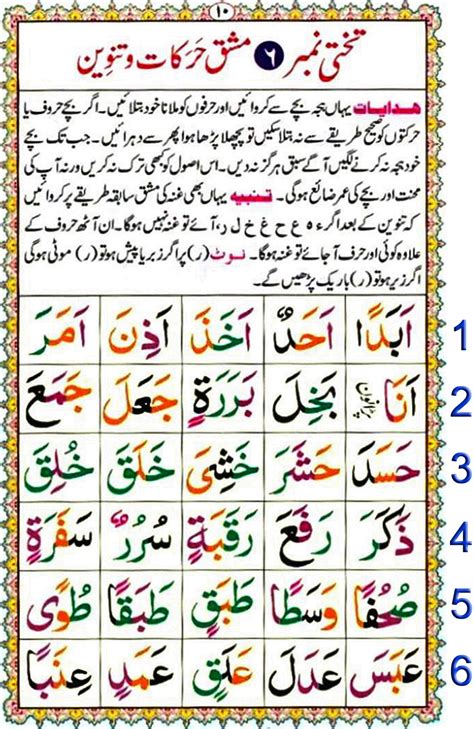 ١٠
تختی نمبر ٦ مشق حرکات و تنوین
ھدایات یہاں ہجہ بچے سے کروائیں اور حرفوں کو ملانا خود بتلائیں۔ اگر بچے حروف یا
حرکتوں کو صحیح طریقے سے نہ بتلا سکیں تو پچھلا پڑھا ہوا پھر سے دہرائیں۔ جب تک بچے
خود ہجہ نہ کرنے لگیں آگے سبق ہرگز نہ دیں۔ اس اصول کو بھی ترک نہ کریں ورنہ آپ کی
محنت اور بچے کی عمر ضائع ہوگی۔ تنبیہ یہاں بھی غنہ کی مشق سابقہ طریقے پر کروائیں
کہ تنوین کے بعد اگر ء ہ ع ح غ خ ل ر، آئے تو غنہ نہیں ہوگا۔ ان آٹھ حروف کے
علاوہ کوئی اور حرف آجائے تو غنہ ہوگا۔ نوٹ (ر) پر اگر زبر یا پیش ہو تو (ر) موٹی ہوگی
اگر زیر ہو تو (ر) باریک پڑھیں گے۔
اَبَدًا اَحَدٌ اَخَذَ اَذِنَ اَمَرَ 1
اَنَا بَخِلَ بَرَرَةٍ جَعَلَ جَمَعَ 2
حَسَدَ حَشَرَ خَشِیَ خَلَقَ خُلِقَ 3
ذَکَرَ رَفَعَ رَقَبَةٍ سُرُرٌ سَفَرَةٍ 4
صُحُفًا وَسَطًا طَبَقٍ طَبَقًا طُوًی 5
عَبَسَ عَدَلَ عَلَقٍ عَمَدٍ عِنَبًا 6